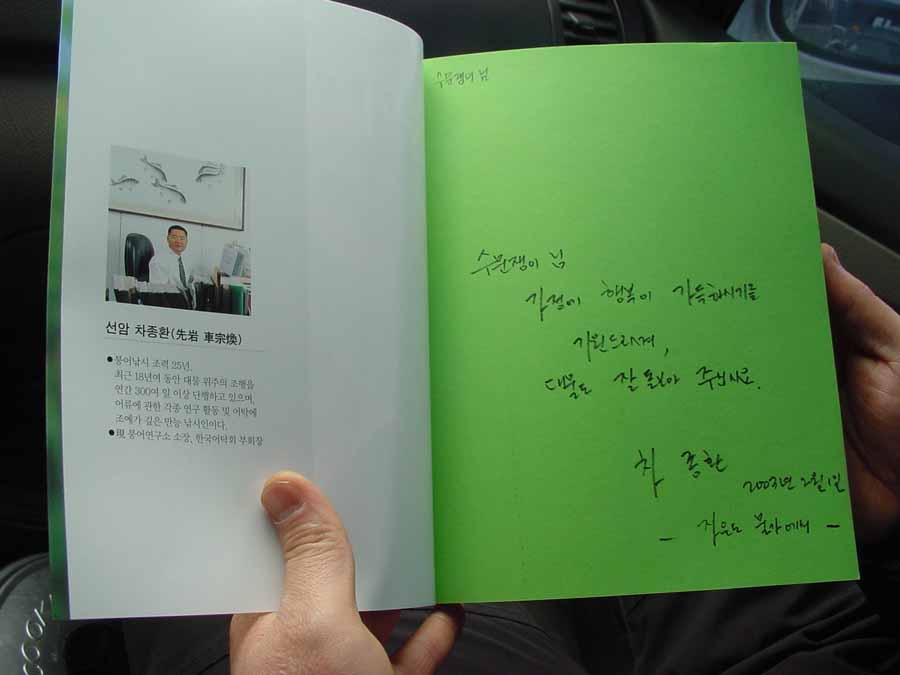 선암 차종환(先岩 車宗煥)
●붕어낚시 조력 25년.
최근 18년여 동안 대물 위주의 조행을
연간 300여 일 이상 단행하고 있으며,
어류에 관한 각종 연구 활동 및 어탁에
조예가 깊은 만능 낚시인이다.
●現 붕어연구소 소장, 한국어탁회 부회장
수문쟁이 님
수문쟁이 님
가정이 행복이 가득하시기를
기원드리며,
대물도 잘 돌보아 주십시요.
차종환
2003년 2월 1일
물가에서 -
COOK